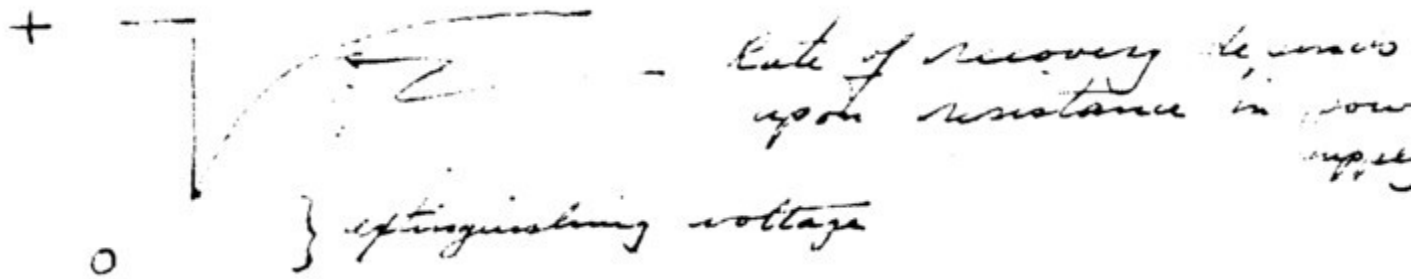 +
Rate of recovery depends
upon resistance in
} extinguishing voltage
0